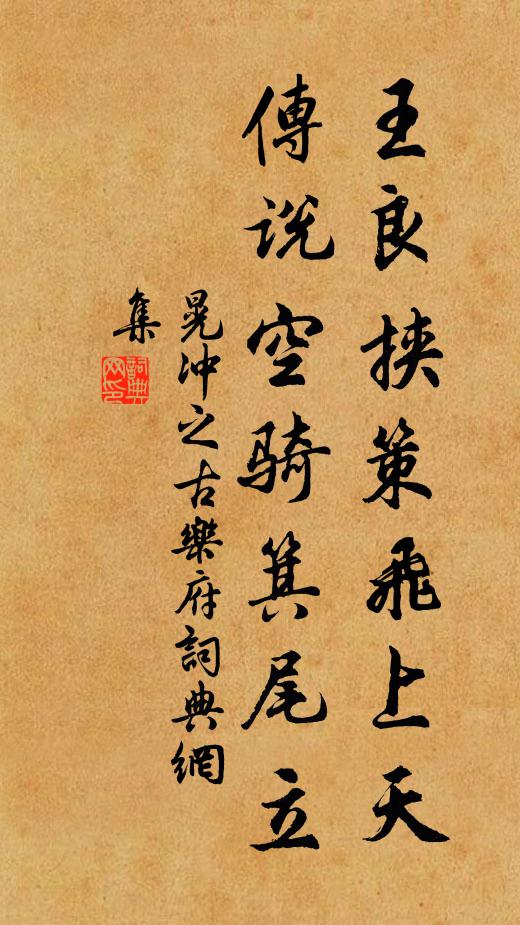 王良挾策飛上天
傅说空騎箕尾立
晁冲之古樂府詞典網
集
詞典网印